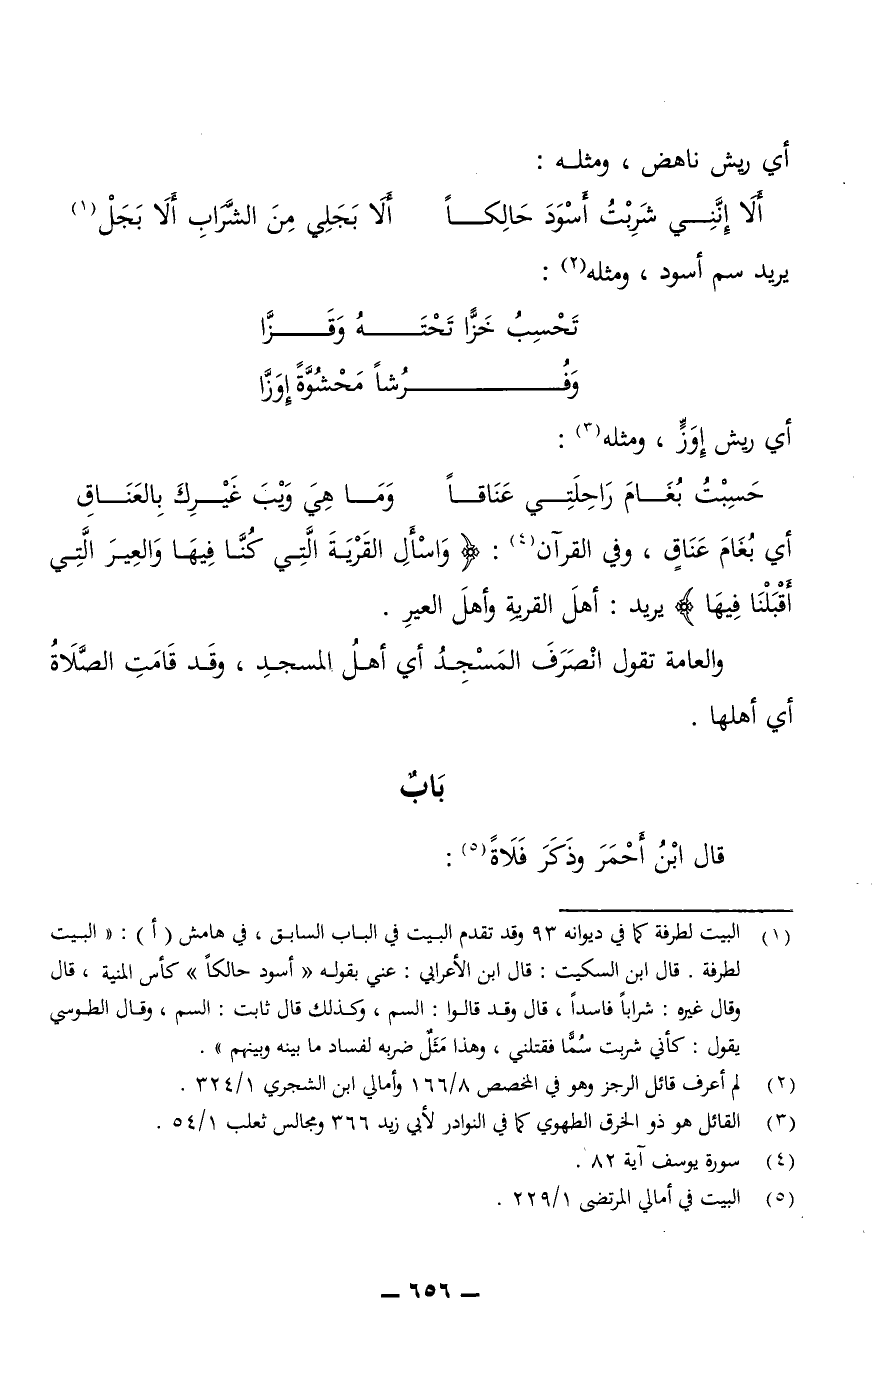 أي ريش ناهض ، ومثلـه :
أَلَا إِنَّنِــي شَرِبْتُ أَسْوَدَ حَالِكــاً أَلَا بَجَلِي مِنَ الشَّرَابِ أَلَا بَجَلْ(١)
يريد سم أسود ، ومثله(٢) :
تَحْسِبُ خَزًّا تَحْتَــهُ وَقَــزَّا
وَفُــرُشاً مَحْشُوَّةً إِوَزَّا
أي ريش إِوَزٍّ ، ومثله(٣) :
حَسِبْتُ بُغَــامَ رَاحِلَتِــي عَنَاقــاً وَمَــا هِيَ وَيْبَ غَيْــرِكَ بِالعَنَــاقِ
أي بُغَامَ عَنَاقٍ ، وفي القرآن(٤) : ﴿ وَاسْأَلِ القَرْيَةَ الَّتِي كُنَّا فِيهَا وَالعِيرَ الَّتِي
أَقْبَلْنَا فِيهَا ﴾ يريد : أهلَ القريةِ وأهلَ العيرِ .
والعامة تقول انْصَرَفَ المَسْجِدُ أي أهلُ المسجدِ ، وقَد قَامَتِ الصَّلَاةُ
أي أهلها .
بَابٌ
قال ابْنُ أَحْمَرَ وذَكَرَ فَلَاةً(٥) :
(١) البيت لطرفة كما في ديوانه ٩٣ وقد تقدم البيت في الباب السابق ، في هامش ( أ ) : « البيت
لطرفة . قال ابن السكيت : قال ابن الأعرابي : عني بقوله « أسود حالكاً » كأس المنية ، قال
وقال غيره : شراباً فاسداً ، قال وقد قالوا : السم ، وكذلك قال ثابت : السم ، وقال الطوسي
يقول : كأني شربت سُمًّا فقتلني ، وهذا مَثَلٌ ضربه لفساد ما بينه وبينهم » .
(٢) لم أعرف قائل الرجز وهو في المخصص ١٦٦/٨ وأمالي ابن الشجري ٣٢٤/١ .
(٣) القائل هو ذو الخرق الطهوي كما في النوادر لأبي زيد ٣٦٦ ومجالس ثعلب ٥٤/١ .
(٤) سورة يوسف آية ٨٢ .
(٥) البيت في أمالي المرتضى ٢٢٩/١ .
ــ ٦٥٦ ــ